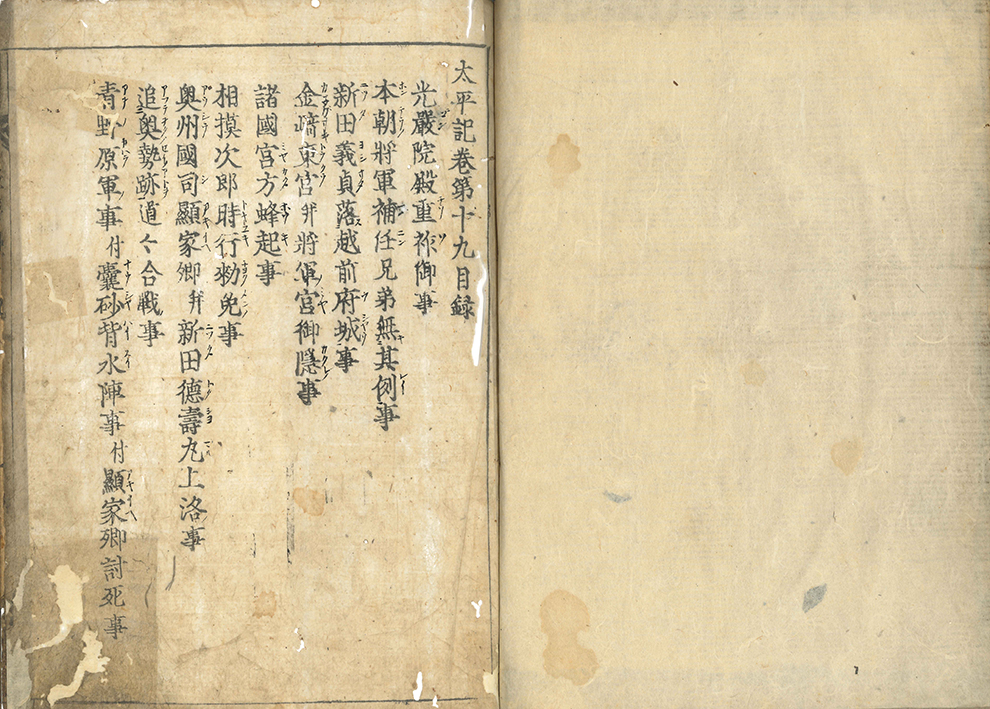 太平記巻第十九目録
光嚴院殿重祚御事
本朝將軍補任兄弟無其例事
新田義貞落越前府城事
金﨑東宮并將軍宮御隱事
諸國宮方蜂起事
相摸次郎時行勑免事
奥州國司顯家卿并新田德壽丸上洛事
追奥勢跡道〻合戰事
青野原軍事付囊砂背水陣事付顯家卿討死事